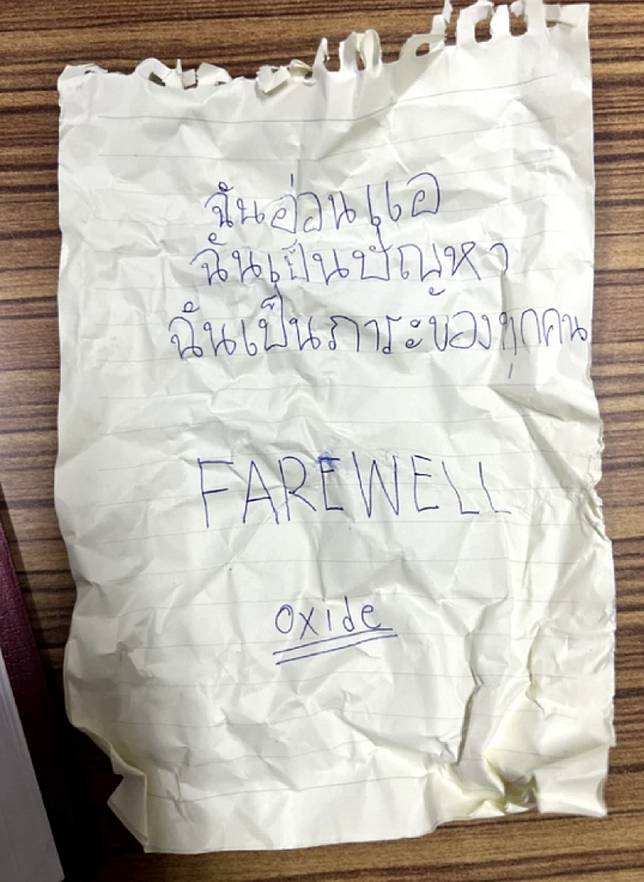 ฉันอ่อนแอ
ฉันเป็นปัญหา
ฉันเป็นภาระข้องทุกคน
FAREWELL
oxide